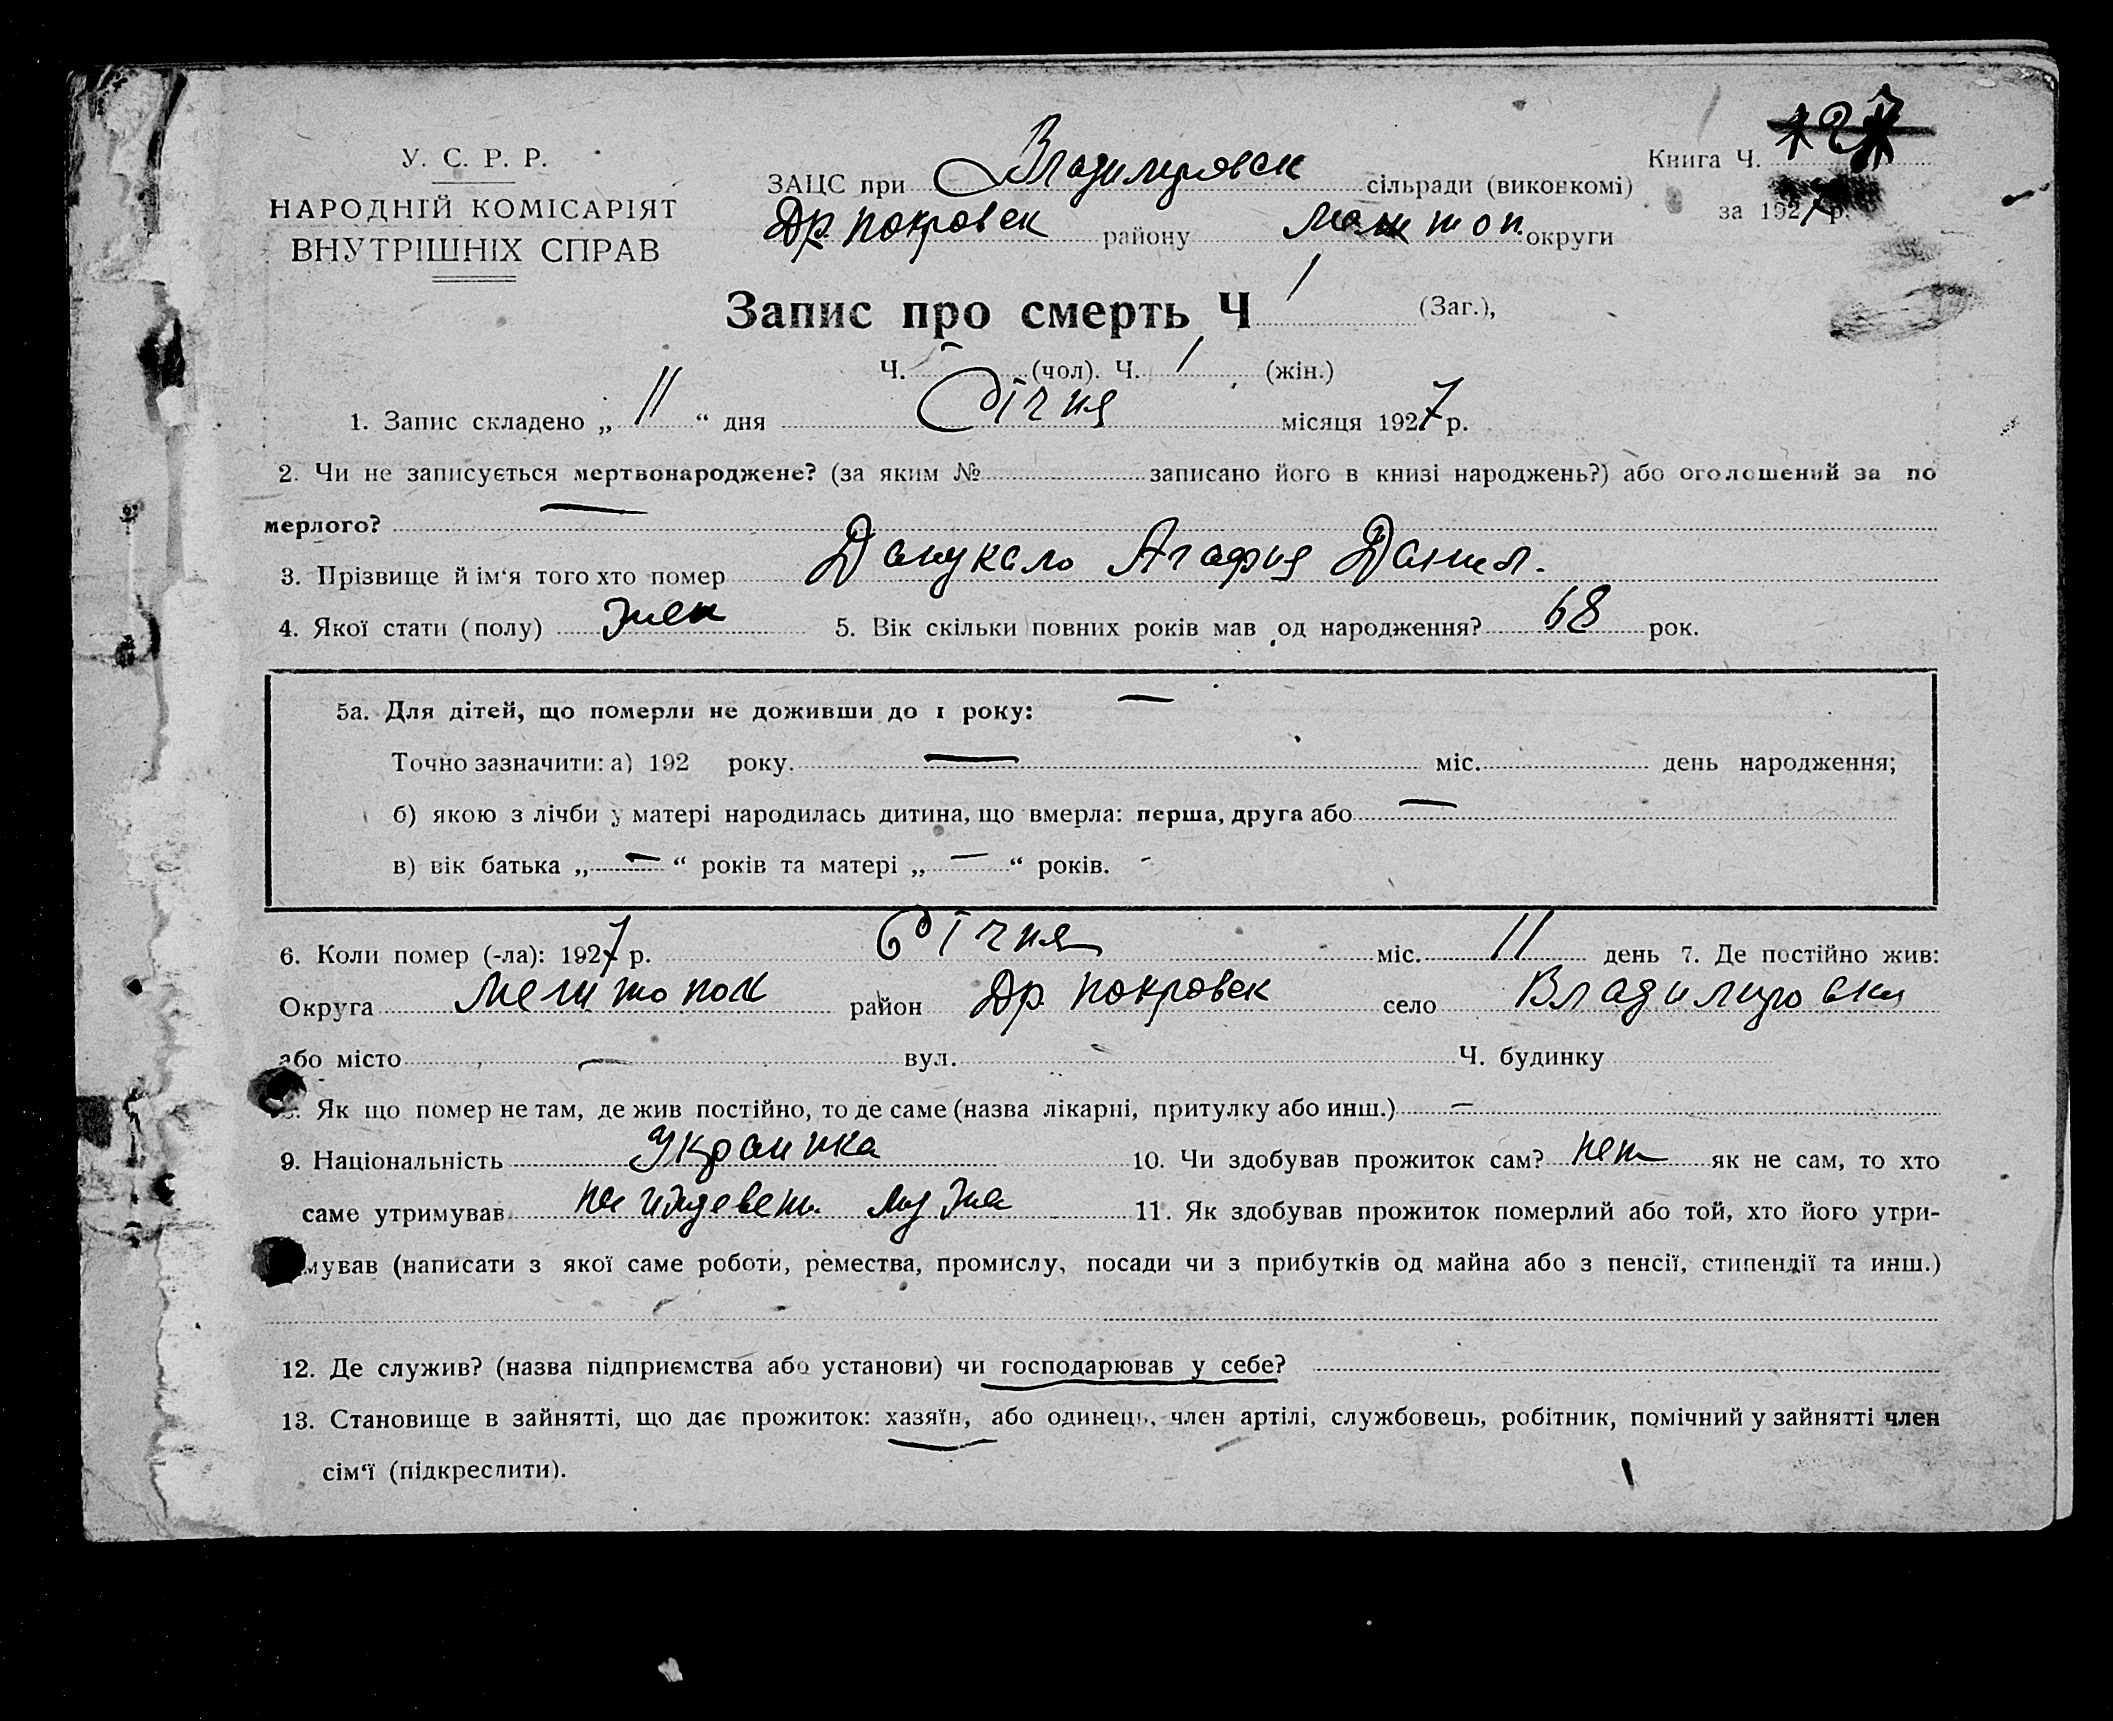 У. С. Р. Р.
НАРОДНІЙ КОМІСАРІЯТ
ВНУТРІШНІХ СПРАВ
Книга Ч. 127
за 1927 р.
ЗАЦС при Владимировск сільради (виконкомі)
Др. Покровск району Мелитоп. округи
Запис про смерть Ч 1 (Заг.),
Ч. — (чол). Ч. 1 (жін.)
1. Запис складено „ 11 “ дня Січня місяця 1927 р.
2. Чи не записується мертвонароджене? (за яким № записано його в книзі народжень?) або оголошений за по
мерлого? —
3. Прізвище й ім‘я того хто помер Агафия Данил.
4. Якої стати (полу) жен 5. Вік скільки повних років мав од народження? 68 рок.
5а. Для дітей, що померли не доживши до 1 року: —
Точно зазначити: а) 192 року. — міс. день народження;
б) якою з лічби у матері народилась дитина, що вмерла: перша, друга або —
в) вік батька „ — “ років та матері „ — “ років.
6. Коли помер (-ла): 1927 р. Січня міс. 11 день 7. Де постійно жив:
Округа Мелитопол район Др. Покровск село Владимировка
або місто — вул. Ч. будинку
Як що помер не там, де жив постійно, то де саме (назва лікарні, притулку або инш.) —
9. Національність Украинка 10. Чи здобував прожиток сам? нет як не сам, то хто
саме утримував на иждевени мужа 11. Як здобував прожиток померлий або той, хто його утри-
мував (написати з якої саме роботи, ремества, промислу, посади чи з прибутків од майна або з пенсії, стипендії та инш.)
12. Де служив? (назва підприємства або установи) чи господарював у себе?
13. Становище в зайнятті, що дає прожиток: хазяїн, або одинець, член артілі, службовець, робітник, помічний у зайнятті член
сім‘ї (підкреслити).